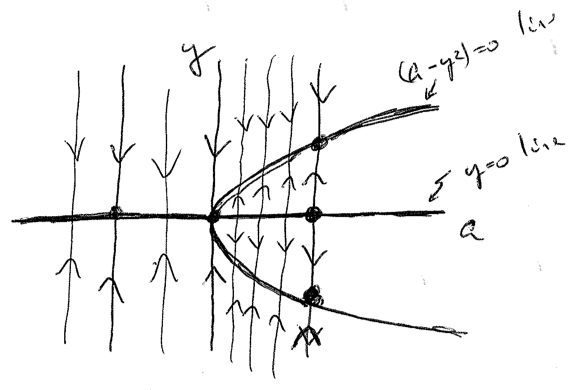 y
(a-y²)=0 line
y=0 line
a